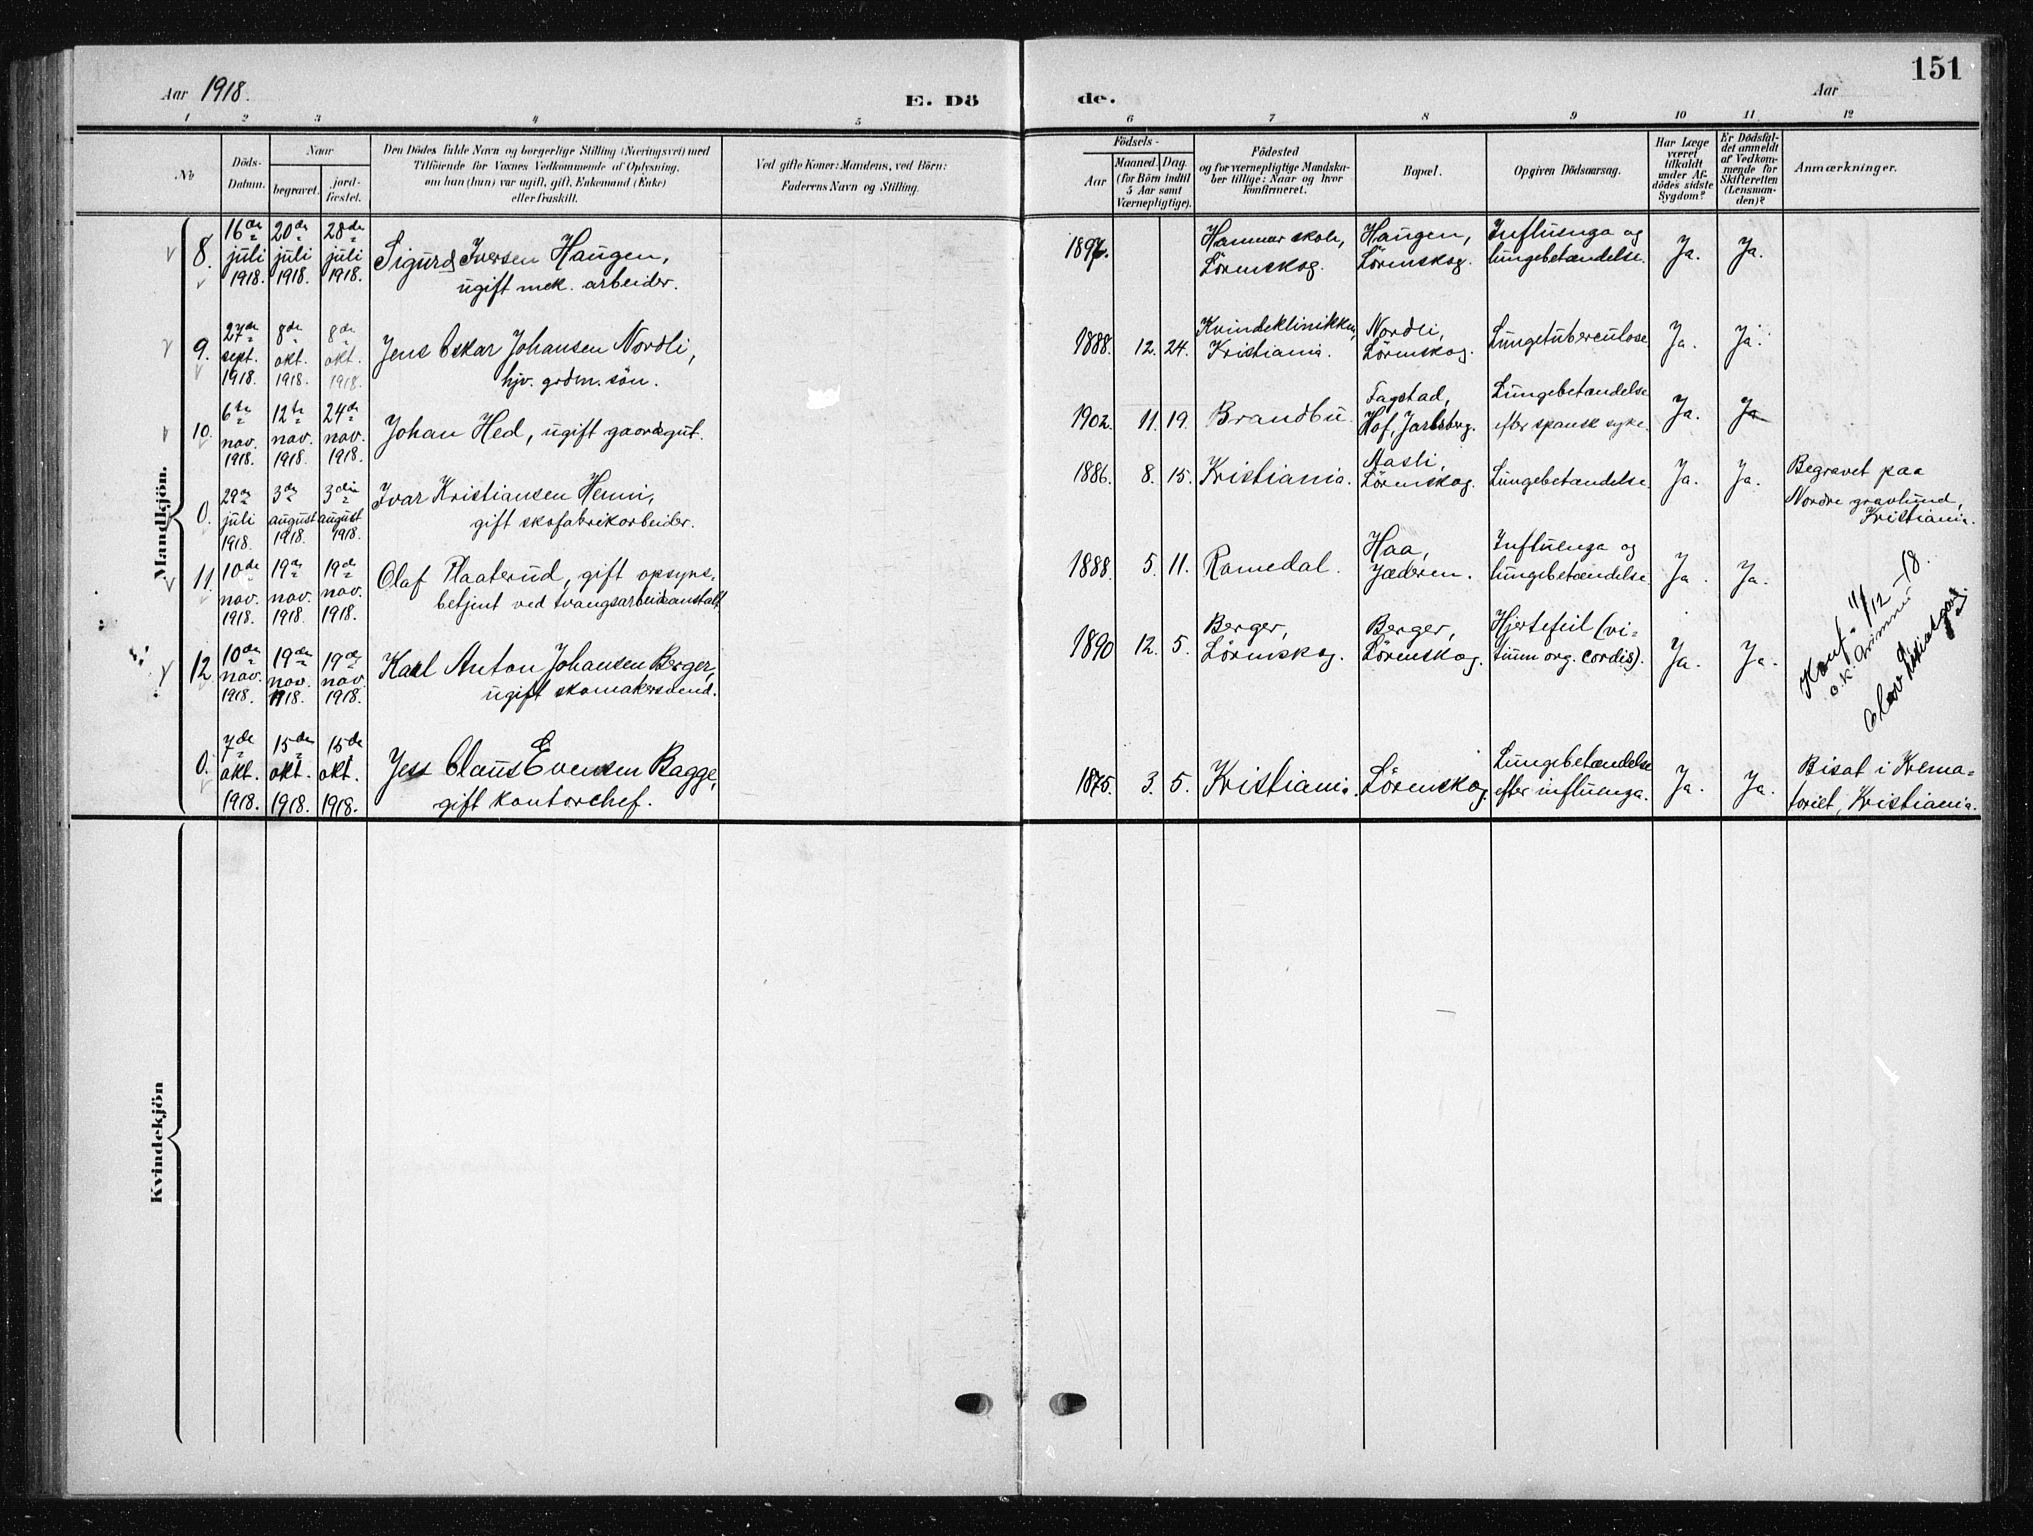 Aar 1918.
E. Dö
de.
Aar
151
1 2 3 4 5 6 7 8 9 10 11 12
No
Döds-
Datum.
Naar
begravet.
jord-
fæstet.
Den Dödes fulde Navn og borgerlige Stilling (Næringsvei) med
Tilföiende for Voxnes Vedkommende af Oplysning,
om han (hun) var ugift, gift, Enkemand (Enke)
eller fraskilt.
Ved gifte Koner: Mandens, ved Börn:
Faderens Navn og Stilling.
Födsels-
Aar
Maaned. Dag.
(for Börn indtil
5 Aar samt
Værnepligtige).
Födested
og for værnepligtige Mandska-
ber tillige: Naar og hvor
konfirmeret.
Bopæl.
Opgiven Dödsaarsag.
Har Læge
været
tilkaldt
under Af-
dödes sidste
Sygdom?
Er Dödsfal-
det anmeldt
af Vedkom-
mende for
Skifteretten
(Lensman-
den)?
Anmærkninger.
Mandkjön.
8.
16de
juli
1918.
20de
juli
1918.
28de
juli
1918.
Sigurd Iversen Haugen,
ugift mek. arbeider.
1897.
Hammer skole,
Lörenskog.
Haugen,
Lörenskog.
Influenza og
lungebetændelse.
Ja.
Ja.
9.
27de
sept.
1918.
8de
okt.
1918.
8de
okt.
1918.
Jens Oskar Johansen Nordli,
hjv. grdm. sön.
1888. 12. 24.
Kvindeklinikken,
Kristiania.
Nordli,
Lörenskog.
Lungetuberculose.
Ja.
Ja.
10.
6te
nov.
1918.
12te
nov.
1918.
24de
nov.
1918.
Johan Hed, ugift gaardsgut.
1902. 11. 19.
Brandbu
Fagstad,
Hof, Jarlsberg.
Lungebetændelse
efter spansk syke.
Ja.
Ja
0.
29de
juli
1918.
3de
august
1918.
3die
august
1918.
Ivar Kristiansen Henni,
gift skofabrikarbeider.
1886. 8. 15.
Kristiania.
Aasli,
Lörenskog.
Lungebetændelse.
Ja.
Ja.
Begravet paa
Nordre gravlund,
Kristiania.
11.
10de
nov.
1918.
19de
nov.
1918.
19de
nov.
1918.
Olaf Plaaterud, gift opsyns-
betjent ved tvangsarbeidsanstalt
1888. 5. 11.
Romedal.
Haa,
Jæderen.
Influenza og
lungebetændelse
Ja.
Ja.
12
10de
nov.
1918.
19de
nov.
1918.
19de
nov
1918.
Karl Anton Johansen Berger,
ugift skomakersvend.
1890 12. 5.
Berger,
Lörenskog.
Berger,
Lörenskog.
Hjertefeil (vi-
tium org. cordis).
Ja.
Ja.
Konf. 11/12-18.
0.
7de
okt.
1918.
15de
okt.
1918.
15de
okt.
1918.
Jess Claus Evensen Bagge,
gift kontorchef.
1875. 3. 5.
Kristiania.
Lörenskog.
Lungebetændelse
efter influenza.
Ja.
Ja.
Bisat i Krema-
toriet, Kristiania.
Kvindekjön